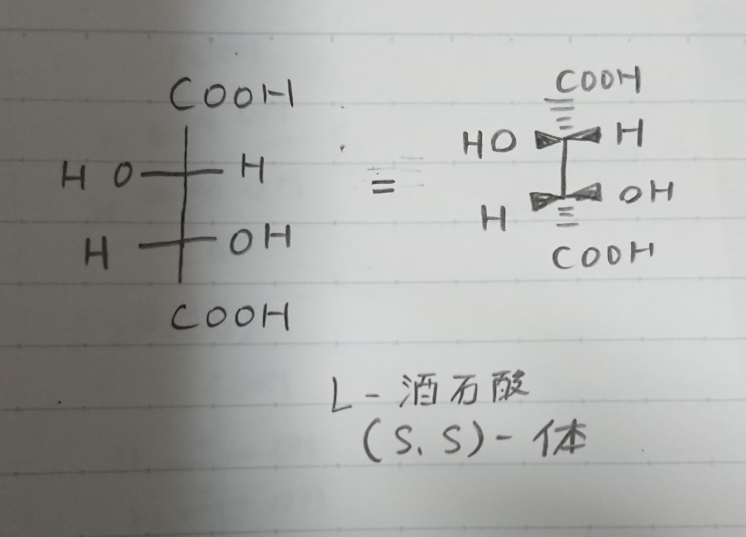 COOH COOH
HO H = HO H
H OH H OH
COOH COOH
L-酒石酸
(S、S)-体